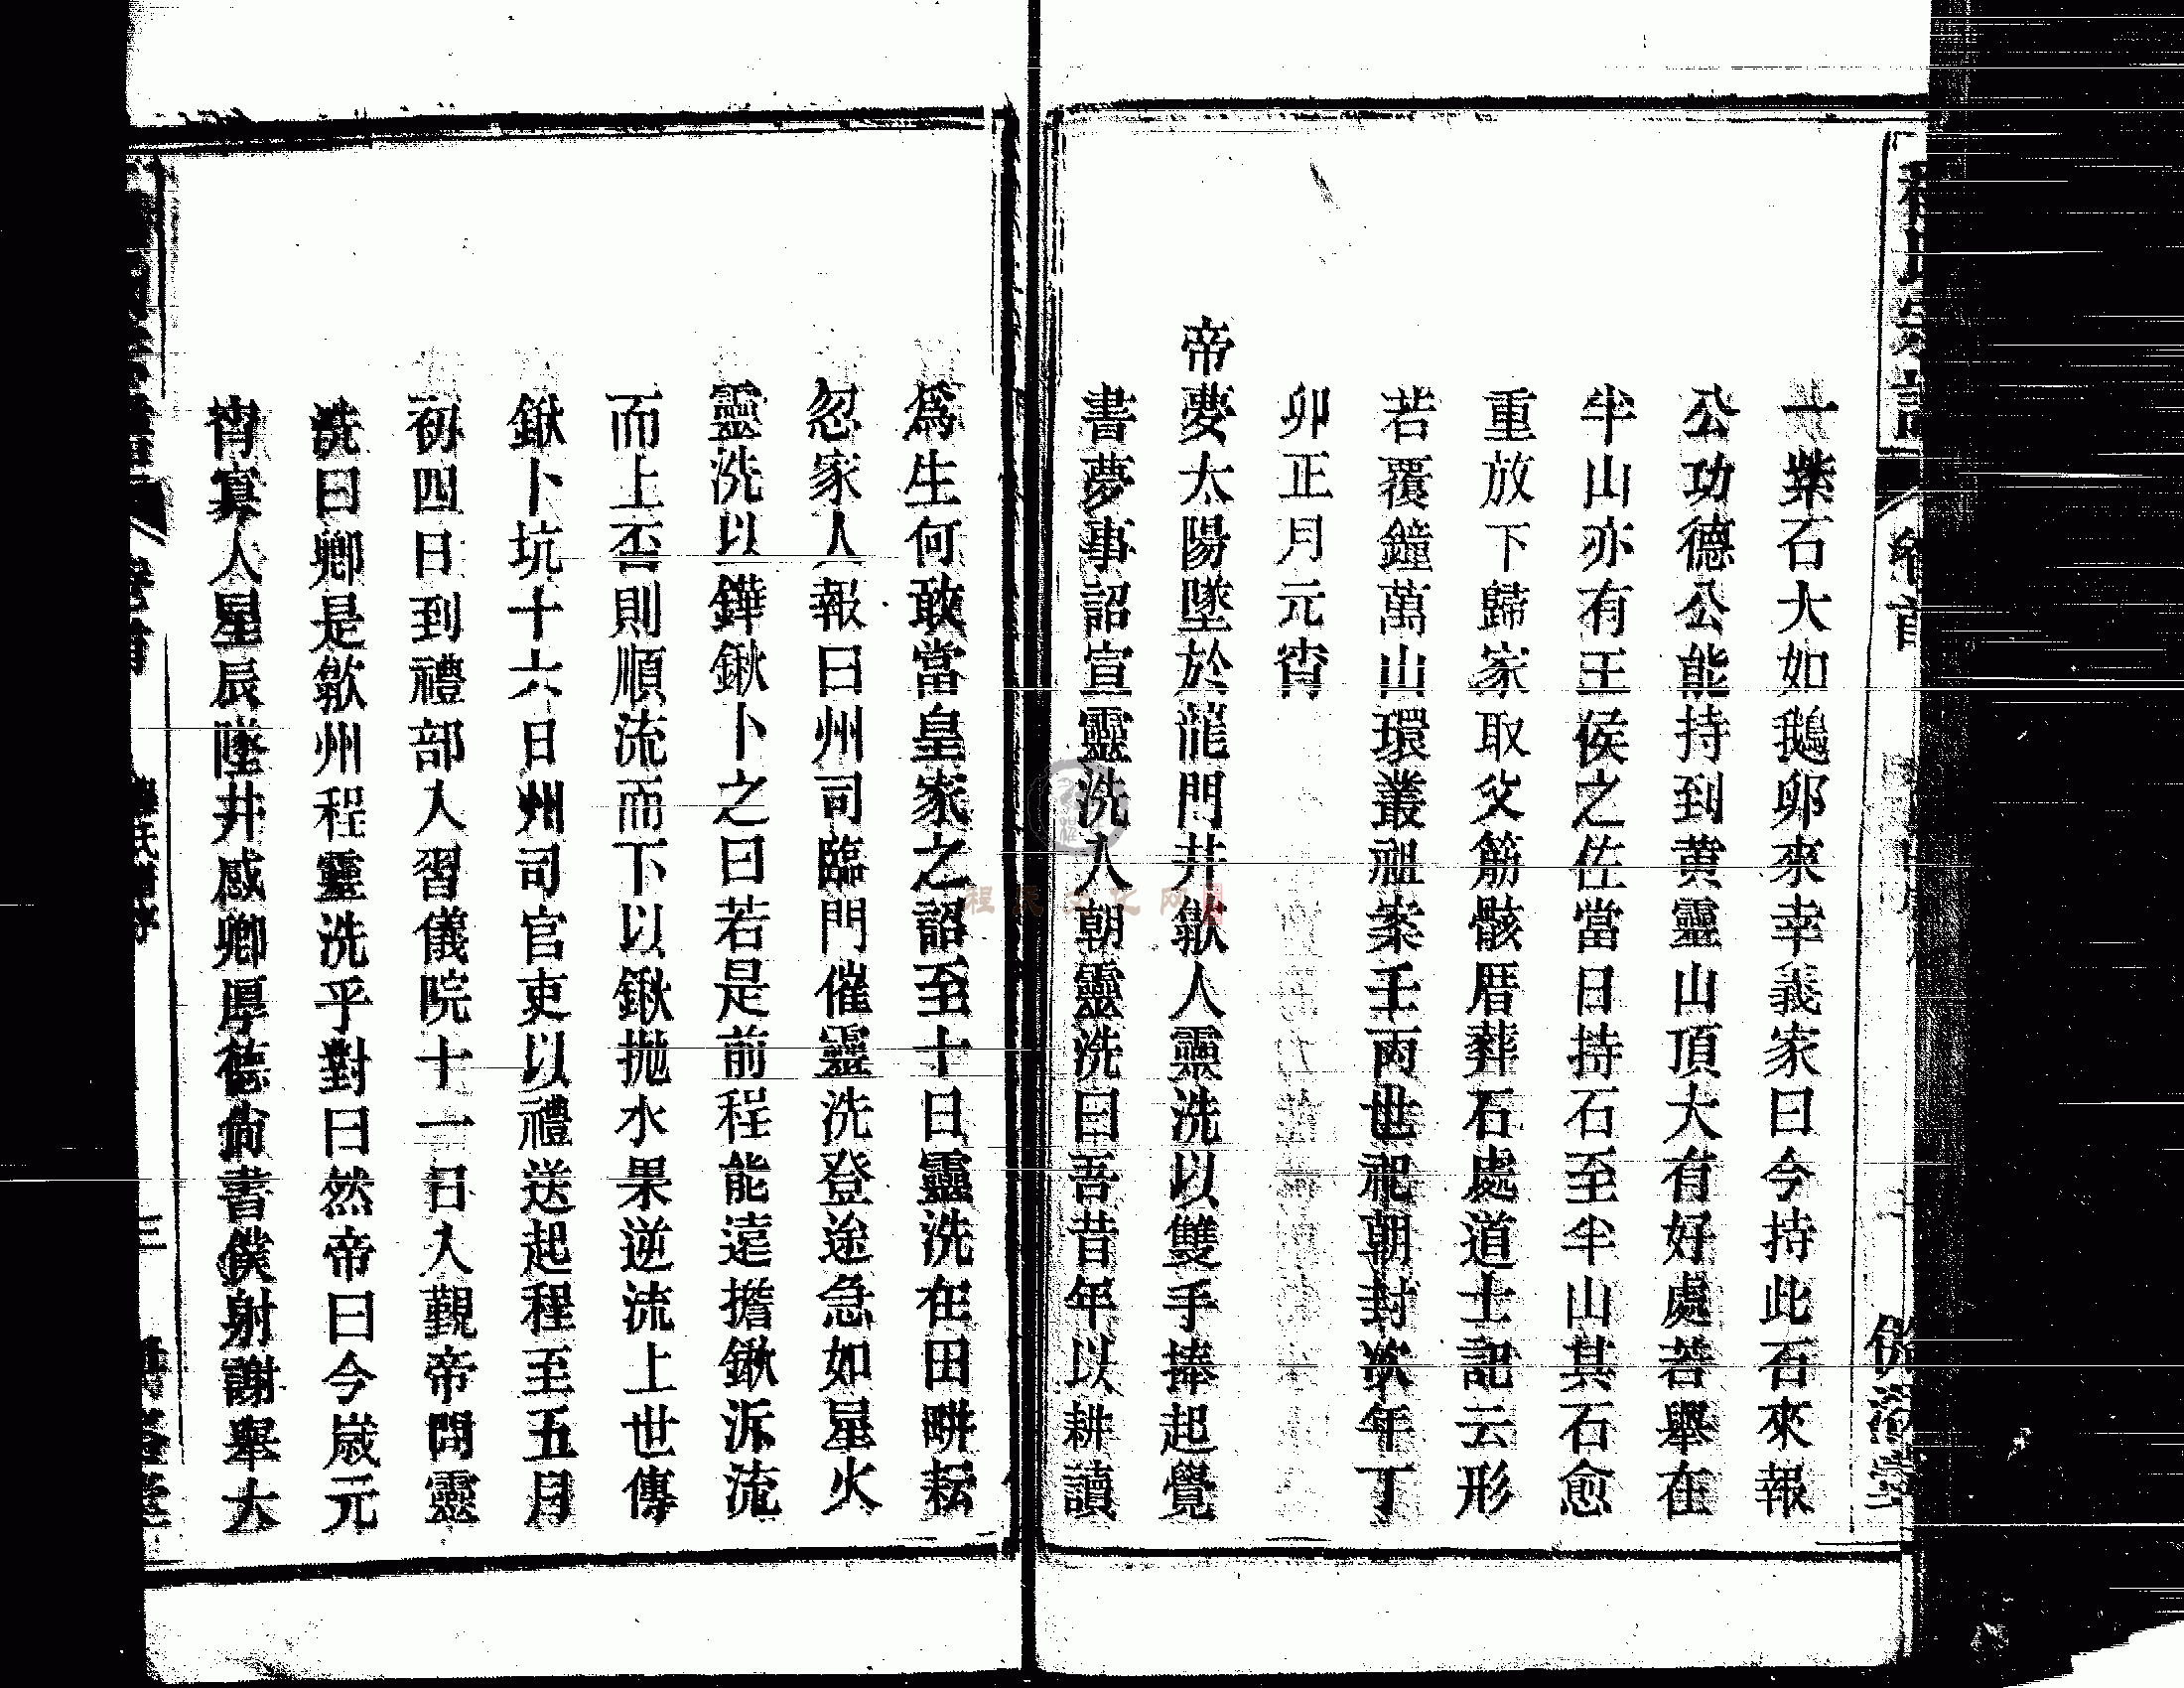 一紫石大如鵝卵來幸義家曰今持此石來報
公功德公能持到黄靈山頂大有好處若舉在
半山亦有王侯之佐當日持石至半山其石愈
重放下歸家取父筋骸厝葬石處道士記云形
若覆鐘萬山環叢祖案壬丙世祀朝封次年丁
卯正月元宵
帝夢太陽墜於龍門井歙人靈洗以雙手捧起覺
書夢事詔宣靈洗入朝靈洗曰吾昔年以耕讀
爲生何敢當皇家之詔至十日靈洗在田畊耘
忽家人報曰州司臨門催靈洗登途急如星火
靈洗以鏵鍬卜之曰若是前程能遠擔鍬泝流
而上否則順流而下以鍬抛水果逆流上世傳
鍬卜坑十六日州司官吏以禮送起程至五月
初四日到禮部入習儀院十一日入觀帝問靈
洗曰鄉是歙州程靈洗乎對曰然帝曰今嵗元
宵寡人星辰墜井感鄉厚德尚書僕射謝舉大
卷首
三
程氏文化网